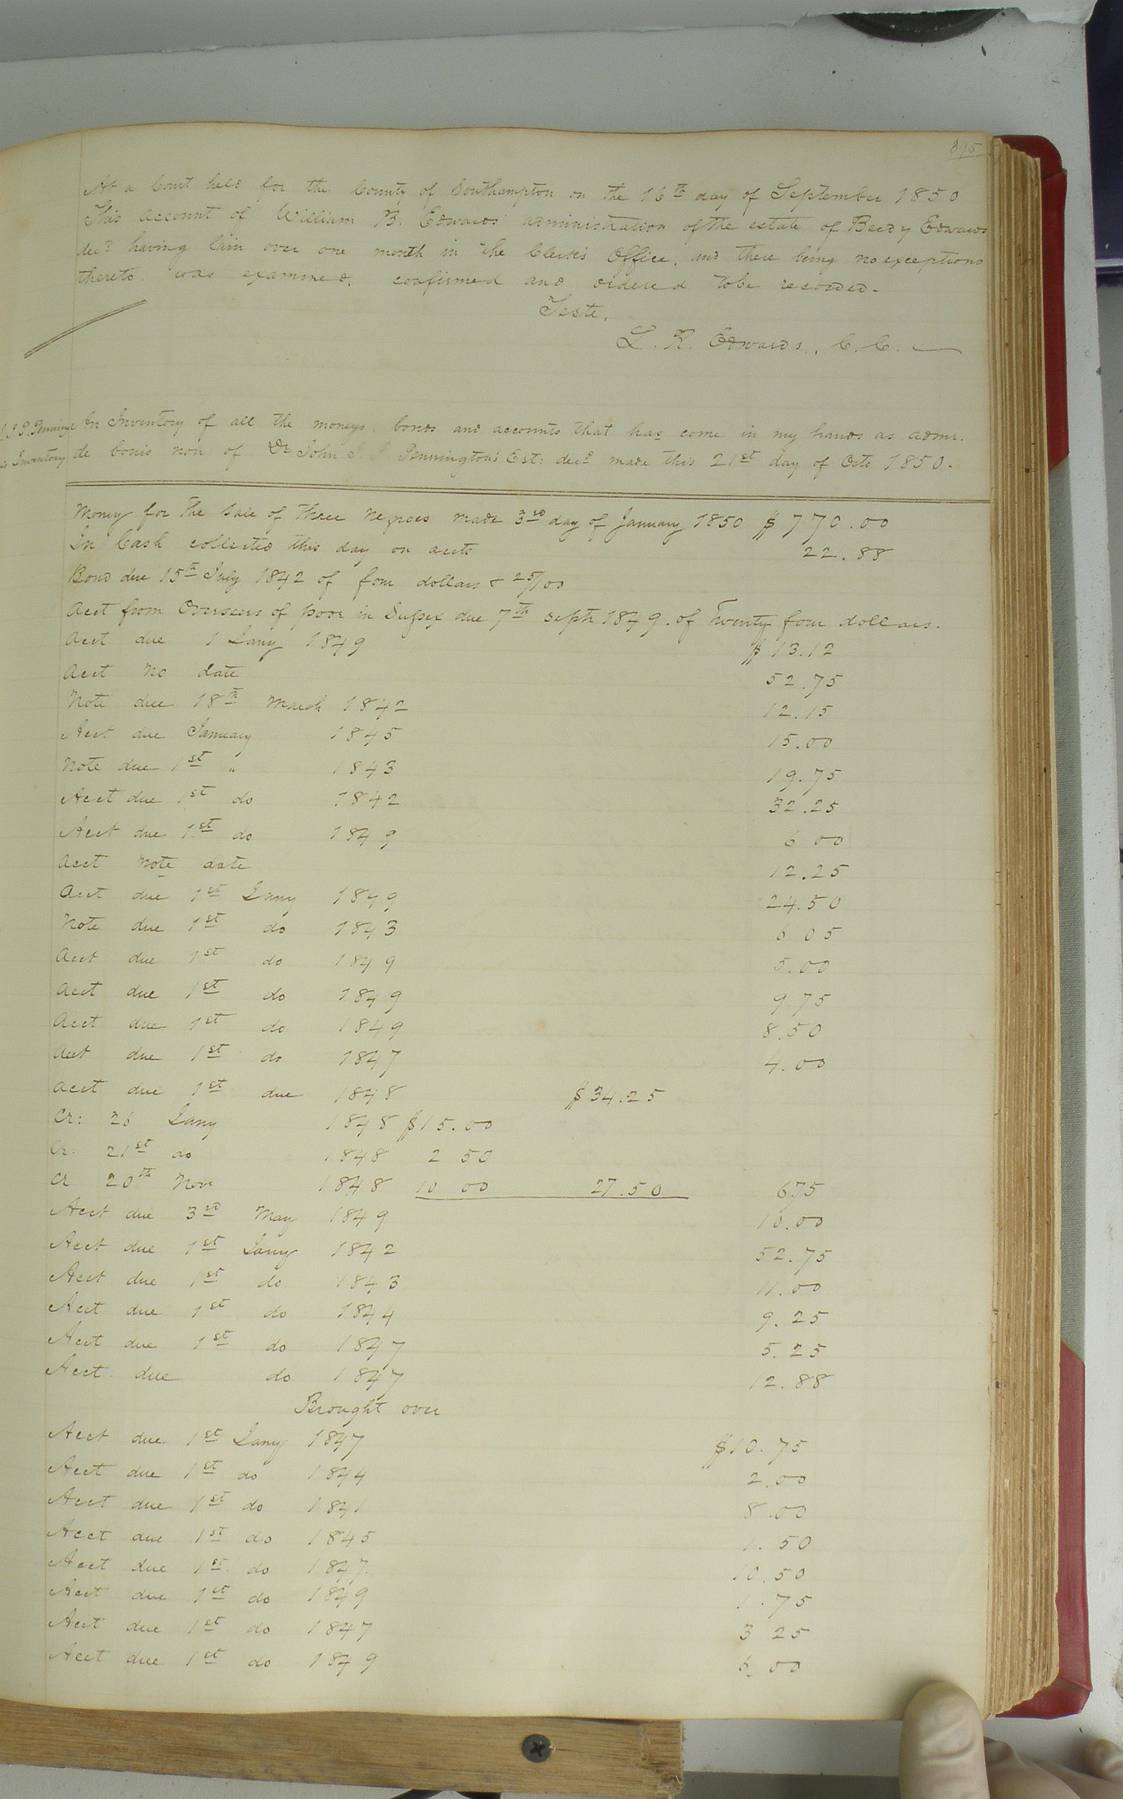 At a Court held for the County of Southampton on the 16th day of September 1850
This account of William B. Edwards' administration of the estate of Beedy Edwards
decd having lain over one month in the Clerk's Office, and there being no exceptions
thereto was examined, confirmed and ordered to be recorded.
Teste,
L. R. Edwards, C. C.
An Inventory of all the moneys, bonds and accounts that has come in my hands as admr.
de bonis non of Dr John Pennington's Est: decd made this 21st day of Octo 1850.
Inventory
Money for the sale of three negroes made 3rd day of January 1850 $770.00
In Cash collected this day on accts 22.88
Bond due 15th July 1842 of four dollars & 25/00
Acct from Overseers of poor in Sussex due 7th Septr 1849. of Twenty four dollars.
Acct due 1 Jany 1849 $13.12
Acct no date 52.75
Note due 18th March 1842 12.15
Acct due January 1845 15.00
Note due 1st " 1843 19.75
Acct due 1st do 1842 32.25
Acct due 1st do 1849 6 00
Acct note date 12.25
Acct due 1st Jany 1849 24.50
Note due 1st do 1843 6 05
Acct due 1st do 1849 5.00
Acct due 1st do 1849 9.75
Acct due 1st do 1849 8.50
Acct due 1st do 1847 4.00
Acct due 1st due 1848 $34.25
Cr: 26 Jany 1848 $15.00
Cr. 21st do 1848 2 50
Cr 20th Nov 1848 10 00 27.50 675
Acct due 3rd May 1849 10.00
Acct due 1st Jany 1842 52.75
Acct due 1st do 1843 11.00
Acct due 1st do 1844 9.25
Acct due 1st do 1847 5.25
Acct due do 1847 12.88
Brought over
Acct due 1st Jany 1847 $10.75
Acct due 1st do 1844 2.00
Acct due 1st do 1841 8.00
Acct due 1st do 1845 1.50
Acct due 1st do 1847 10.50
Acct due 1st do 1849 1.75
Acct due 1st do 1847 3 25
Acct due 1st do 1849 6.00